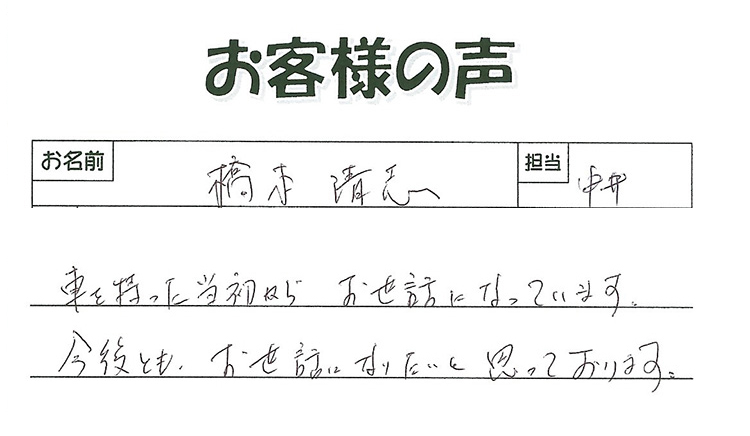 お客様の声
お名前 橋本 清志 担当 中井
車を持った当初から お世話になっています。
今後とも、お世話になりたいと 思っております。